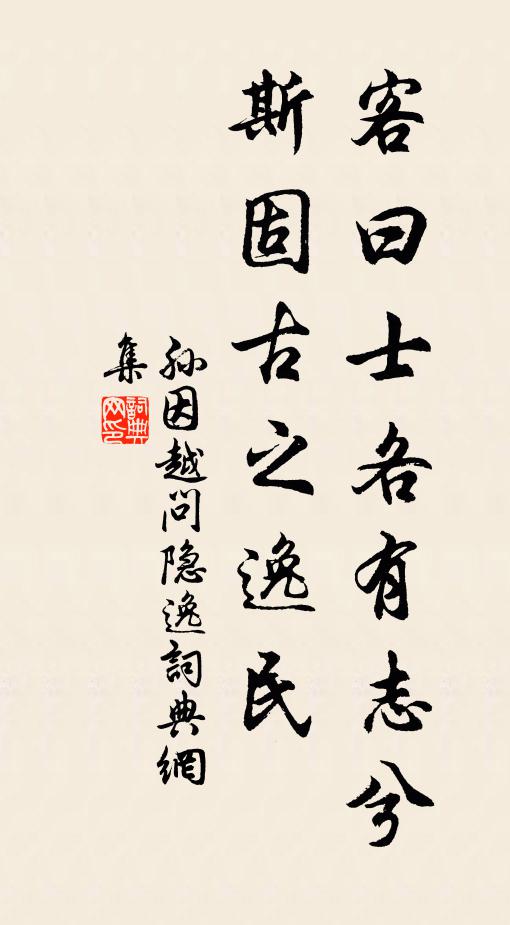 客曰士各有志兮
斯固古之逸民
孙因越问隐逸詞典網
集
詞典网印